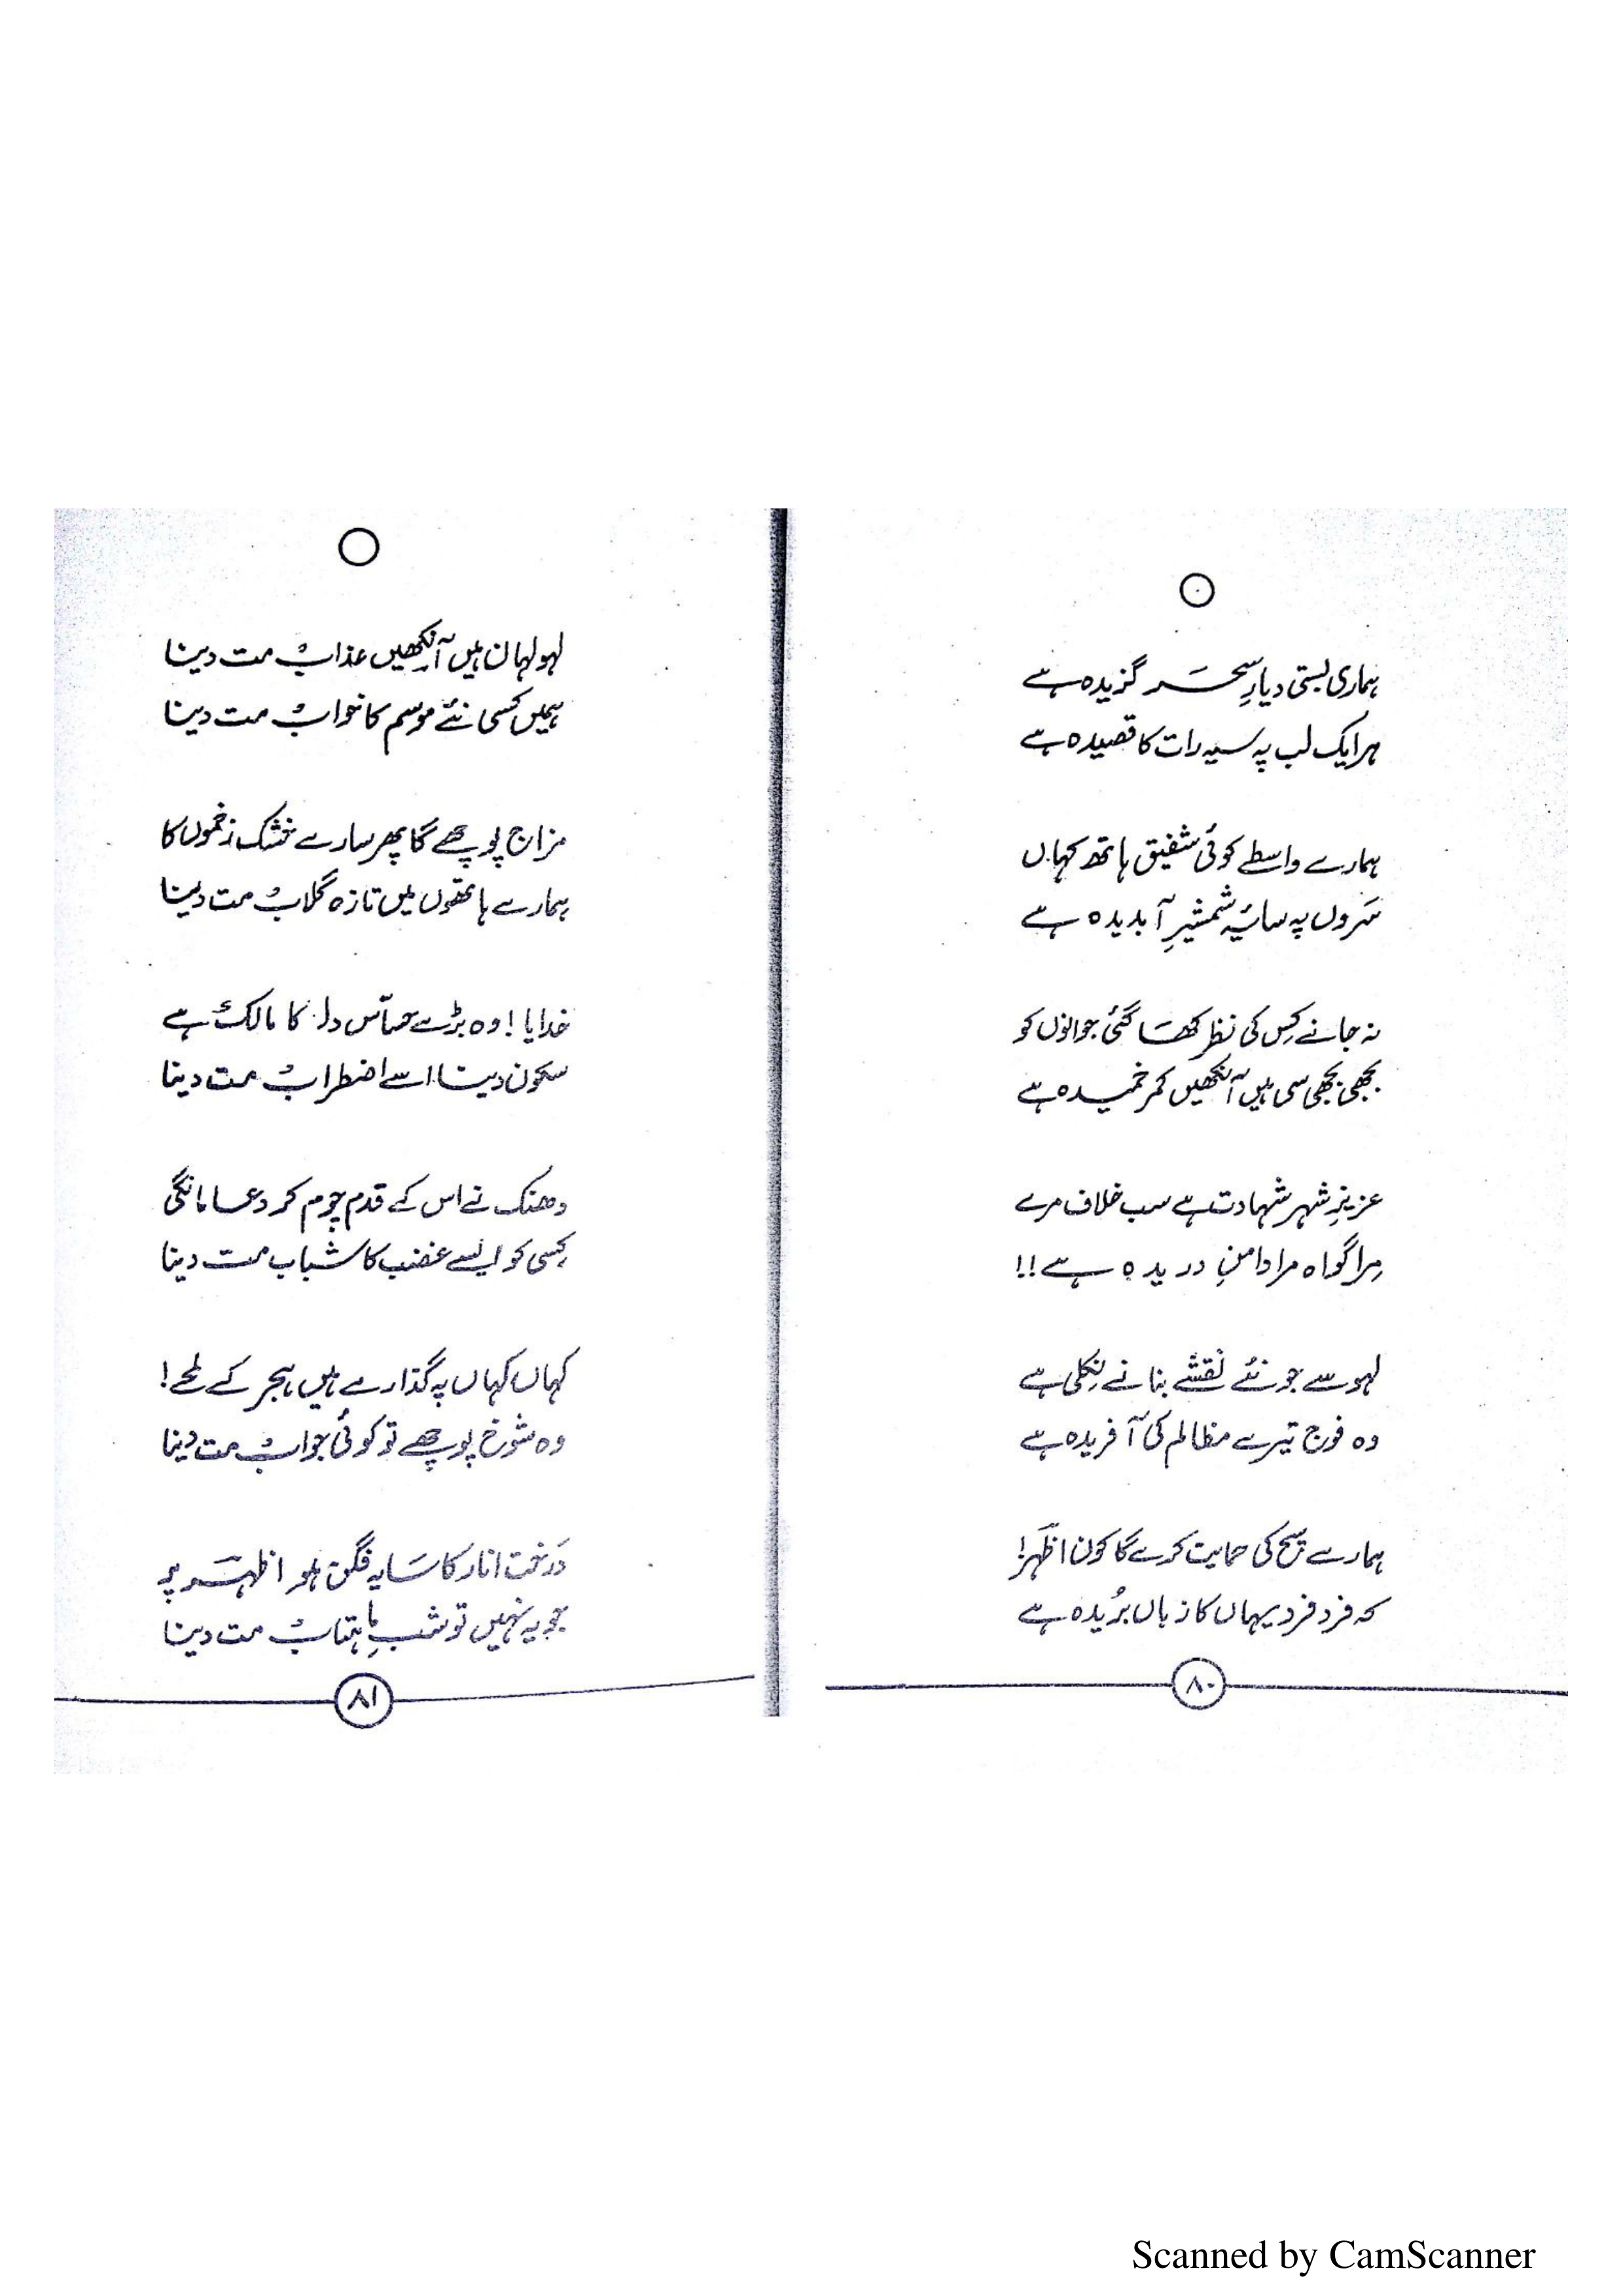 ہماری بستی دیارِ سحر گزیدہ ہے
ہر ایک لب پہ سیہ رات کا قصیدہ ہے
ہمارے واسطے کوئی شفیق ہاتھ کہاں
سَروں پہ سائیۂ شمشیرِ آبدیدہ ہے
نہ جانے کِس کی نظر کھا گئی جوانوں کو
بجھی بجھی سی ہیں آنکھیں کمر خمیدہ ہے
عزیزِ شہر شہادت ہے سب خلاف مرے
مِرا گواہ مرا دامنِ دریدہ ہے !!
لہو سے جو نئے نقشے بنانے نِکلی ہے
وہ فوج تیرے مظالم کی آفریدہ ہے
ہمارے سچ کی حمایت کرے گا کون اظہر!
کہ فرد فرد یہاں کا زباں بُریدہ ہے
۸۰
لہولہان ہیں آنکھیں عذاب مت دینا
ہمیں کسی نئے موسم کا خواب مت دینا
مزاج پوچھے گا پھر سارے خشک زخموں کا
ہمارے ہاتھوں میں تازہ گلاب مت دینا
خدایا ! وہ بڑے حسّاس دل کا مالک ہے
سکون دینا اسے اضطراب مت دینا
دھنک نے اس کے قدم چوم کر دعا مانگی
کِسی کو ایسے غضب کا شباب مت دینا
کہاں کہاں پہ گذارے ہیں ہجر کے لمحے !
وہ شوخ پوچھے تو کوئی جواب مت دینا
دَرخت انار کا سَایہ فگن ہو اظہر پہ
جو یہ نہیں تو شبِ ماہتاب مت دینا
۸۱
Scanned by CamScanner